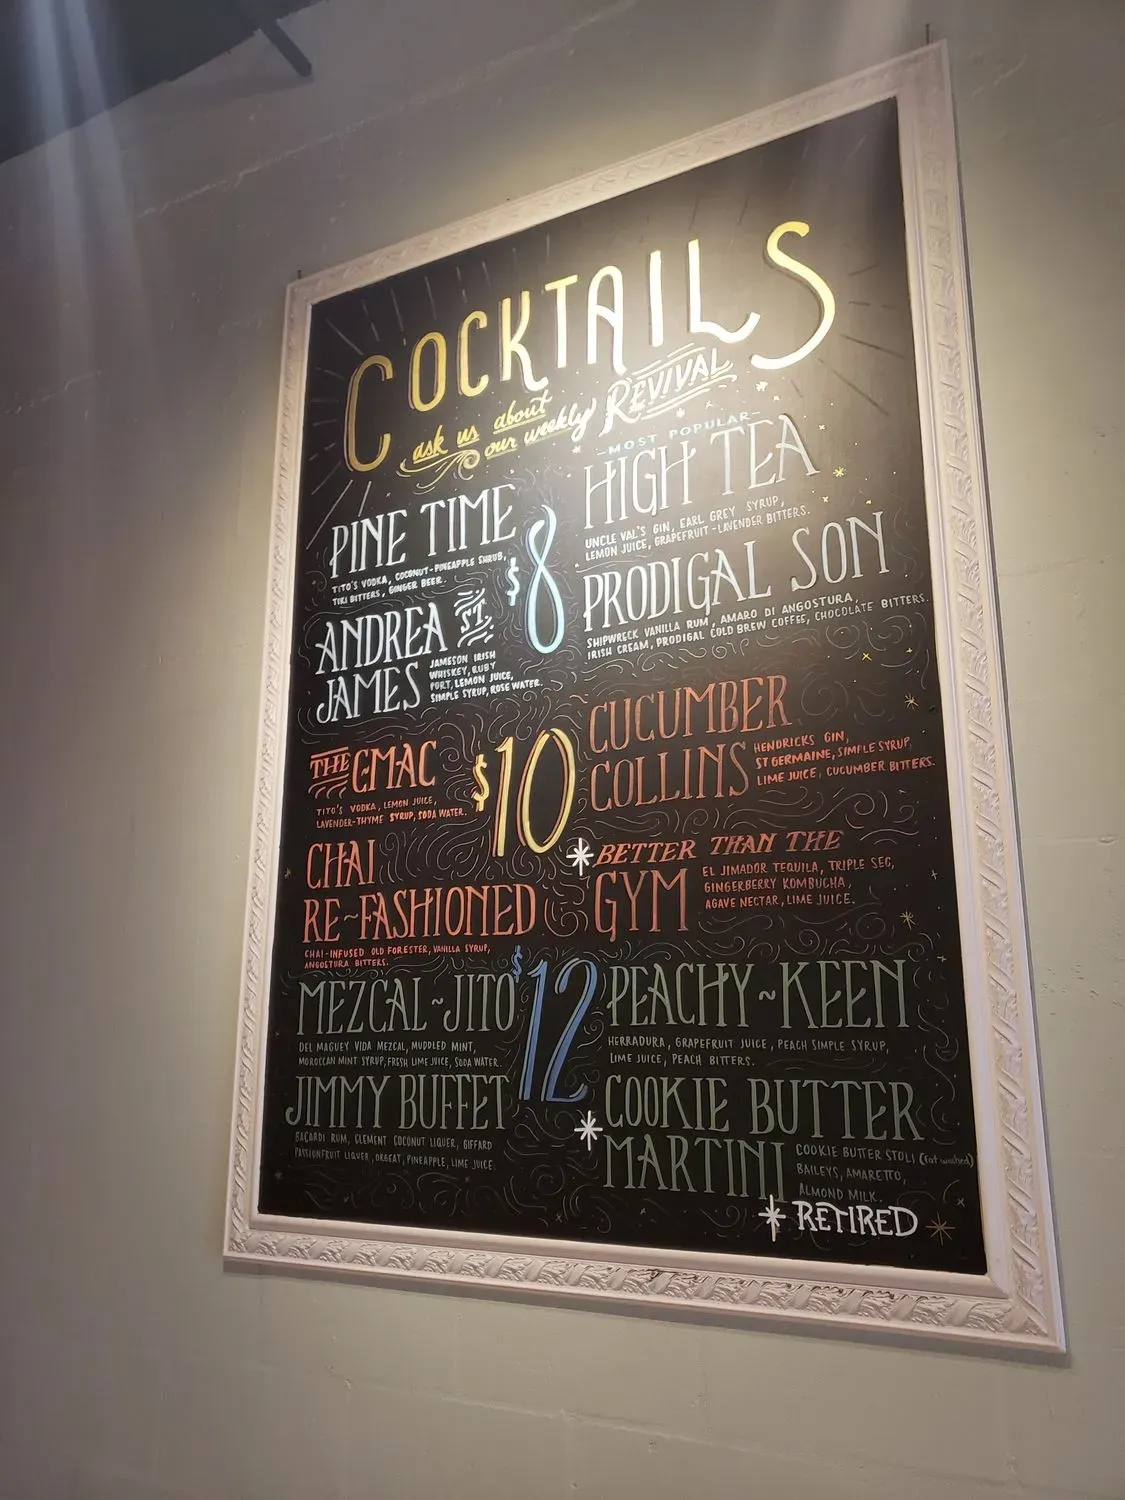 COCKTAILS
ask us about
our weekly REVIVAL
PINE TIME
TITO'S VODKA, COCONUT-PINEAPPLE SHRUB,
TIKI BITTERS, GINGER BEER.
ANDREA ST.
JAMES
JAMESON IRISH
WHISKEY, RUBY
PORT, LEMON JUICE,
SIMPLE SYRUP, ROSE WATER.
$8
-MOST POPULAR-
HIGH TEA
UNCLE VAL'S GIN, EARL GREY SYRUP,
LEMON JUICE, GRAPEFRUIT-LAVENDER BITTERS.
PRODIGAL SON
SHIPWRECK VANILLA RUM, AMARO DI ANGOSTURA,
IRISH CREAM, PRODIGAL COLD BREW COFFEE, CHOCOLATE BITTERS.
THE GMAC
TITO'S VODKA, LEMON JUICE,
LAVENDER-THYME SYRUP, SODA WATER.
CHAI
RE~FASHIONED
CHAI-INFUSED OLD FORESTER, VANILLA SYRUP,
ANGOSTURA BITTERS.
$10
CUCUMBER
COLLINS
HENDRICKS GIN,
ST GERMAINE, SIMPLE SYRUP,
LIME JUICE, CUCUMBER BITTERS.
* BETTER THAN THE
GYM
EL JIMADOR TEQUILA, TRIPLE SEC,
GINGERBERRY KOMBUCHA,
AGAVE NECTAR, LIME JUICE.
MEZCAL~JITO
DEL MAGUEY VIDA MEZCAL, MUDDLED MINT,
MOROCCAN MINT SYRUP, FRESH LIME JUICE, SODA WATER.
JIMMY BUFFET
BACARDI RUM, CLEMENT COCONUT LIQUER, GIFFARD
PASSIONFRUIT LIQUER, ORGEAT, PINEAPPLE, LIME JUICE.
$12
PEACHY~KEEN
HERRADURA, GRAPEFRUIT JUICE, PEACH SIMPLE SYRUP,
LIME JUICE, PEACH BITTERS.
* COOKIE BUTTER
MARTINI
COOKIE BUTTER STOLI (fat washed)
BAILEYS, AMARETTO,
ALMOND MILK.
* RETIRED